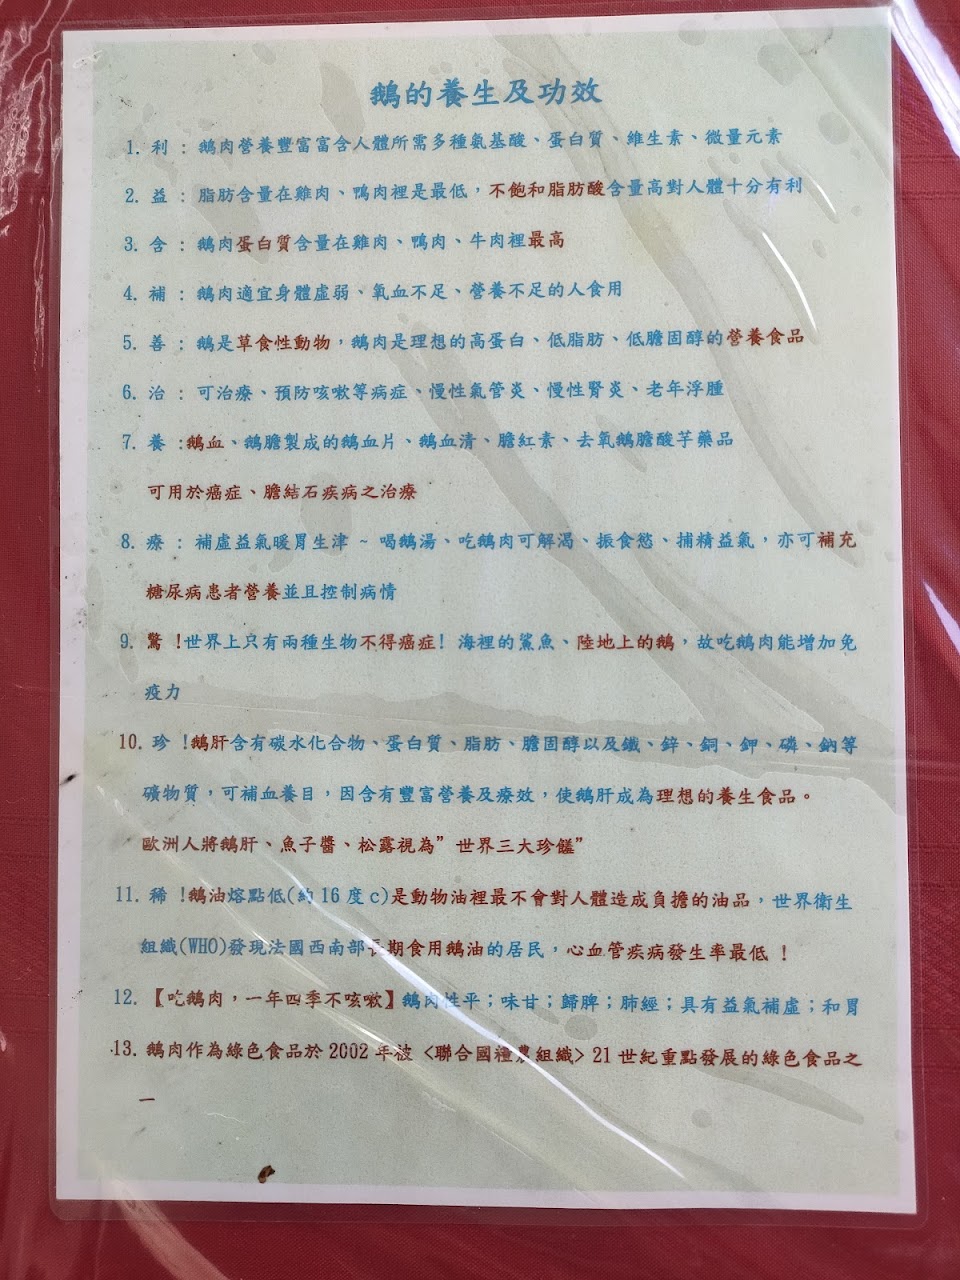 鵝的養生及功效
1. 利 : 鵝肉營養豐富富含人體所需多種氨基酸、蛋白質、維生素、微量元素
2. 益 : 脂肪含量在雞肉、鴨肉裡是最低，不飽和脂肪酸含量高對人體十分有利
3. 含 : 鵝肉蛋白質含量在雞肉、鴨肉、牛肉裡最高
4. 補 : 鵝肉適宜身體虛弱、氧血不足、營養不足的人食用
5. 善 : 鵝是草食性動物，鵝肉是理想的高蛋白、低脂肪、低膽固醇的營養食品
6. 治 : 可治療、預防咳嗽等病症、慢性氣管炎、慢性腎炎、老年浮腫
7. 養 :鵝血、鵝膽製成的鵝血片、鵝血清、膽紅素、去氧鵝膽酸芋藥品
可用於癌症、膽結石疾病之治療
8. 療 : 補虛益氣暖胃生津 ~ 喝鵝湯、吃鵝肉可解渴、振食慾、捕精益氣，亦可補充
糖尿病患者營養並且控制病情
9. 驚 !世界上只有兩種生物不得癌症! 海裡的鯊魚、陸地上的鵝，故吃鵝肉能增加免
疫力
10. 珍 !鵝肝含有碳水化合物、蛋白質、脂肪、膽固醇以及鐵、鋅、銅、鉀、磷、鈉等
礦物質，可補血養目，因含有豐富營養及療效，使鵝肝成為理想的養生食品。
歐洲人將鵝肝、魚子醬、松露視為”世界三大珍饈”
11. 稀 !鵝油熔點低(約 16 度 c)是動物油裡最不會對人體造成負擔的油品，世界衛生
組織(WHO)發現法國西南部長期食用鵝油的居民，心血管疾病發生率最低 !
12. 【吃鵝肉，一年四季不咳嗽】鵝肉性平；味甘；歸脾；肺經；具有益氣補虛；和胃
13. 鵝肉作為綠色食品於 2002 年被 <聯合國糧農組織> 21 世紀重點發展的綠色食品之
一